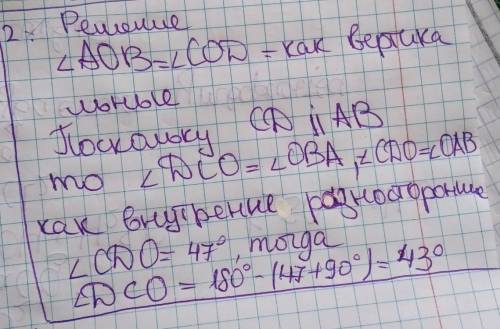 2. Решение
∠AOB=∠COD = как вертика
льные
Поскольку CD || AB
то ∠DCO=∠OBA, ∠CDO=∠OAB
как внутрение разносторонние
∠CDO= 47°, тогда
∠DCO = 180°-(47+90°)= 43°